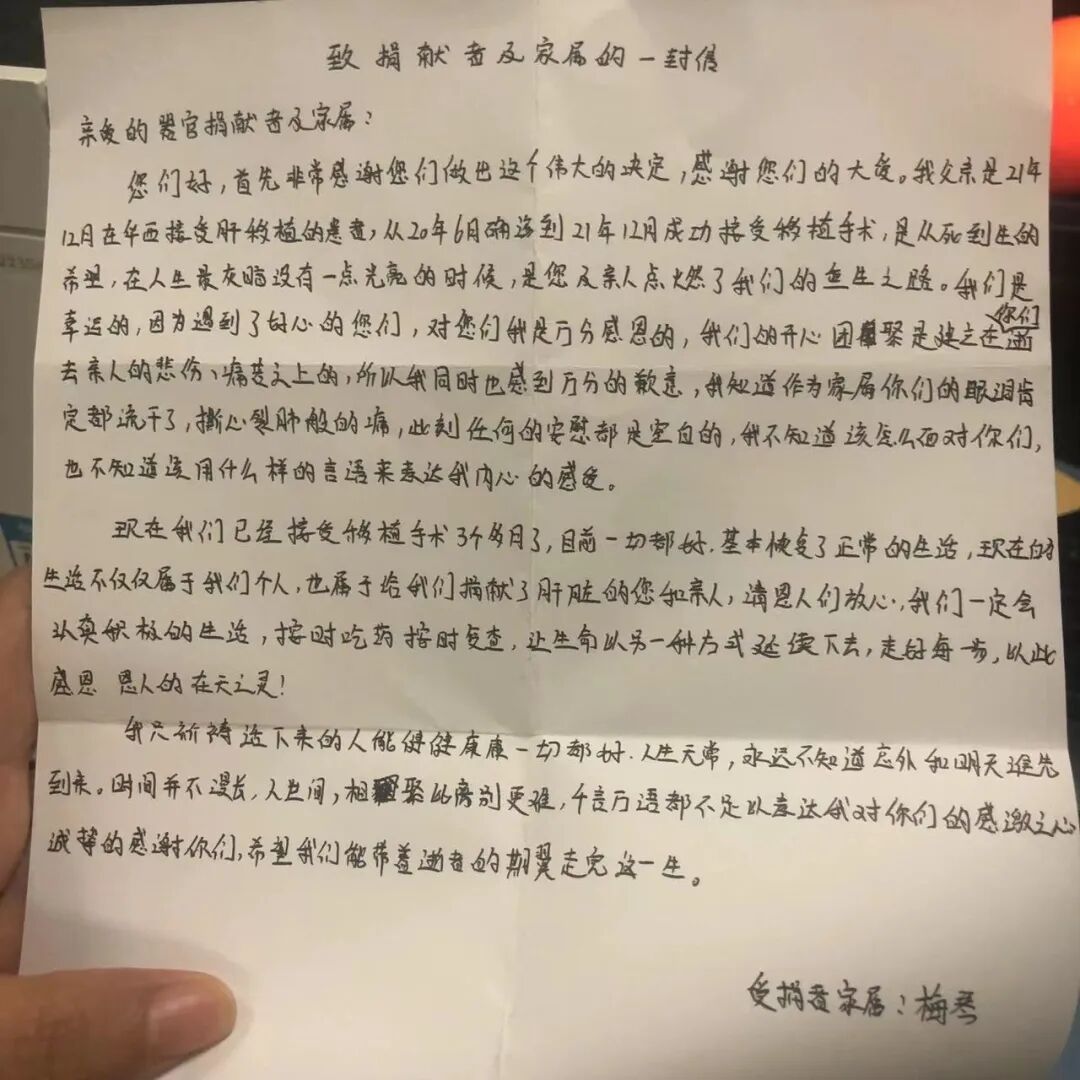 致捐献者及家属的一封信
亲爱的器官捐献者及家属：
您们好，首先非常感谢您们做出这个伟大的决定，感谢您们的大爱。我父亲是21年
12月在华西接受肝移植的患者，从20年6月确诊到21年12月成功接受移植手术，是从死到生的
希望，在人生最灰暗没有一点光亮的时候，是您及亲人点燃了我们的重生之路。我们是
幸运的，因为遇到了好心的您们，对您们我是万分感恩的，我们的开心团聚是建立在你们逝
去亲人的悲伤、痛苦之上的，所以我同时也感到万分的歉意，我知道作为家属你们的眼泪肯
定都流干了，撕心裂肺般的痛，此刻任何的安慰都是空白的，我不知道该怎么面对你们，
也不知道该用什么样的言语来表达我内心的感受。
现在我们已经接受移植手术3个多月了，目前一切都好.基本恢复了正常的生活，现在的
生活不仅仅属于我们个人，也属于给我们捐献了肝脏的您和亲人，请恩人们放心，我们一定会
认真积极的生活，按时吃药按时复查，让生命以另一种方式延续下去，走好每一步，以此
感恩 恩人的在天之灵！
我只祈祷活下来的人能健健康康一切都好.人生无常，永远不知道意外和明天谁先
到来。时间并不漫长，人世间，相聚比离别更难，千言万语都不足以表达我对你们的感激之心
诚挚的感谢你们，希望我们能带着逝者的期翼走完这一生。
受捐者家属：梅琴